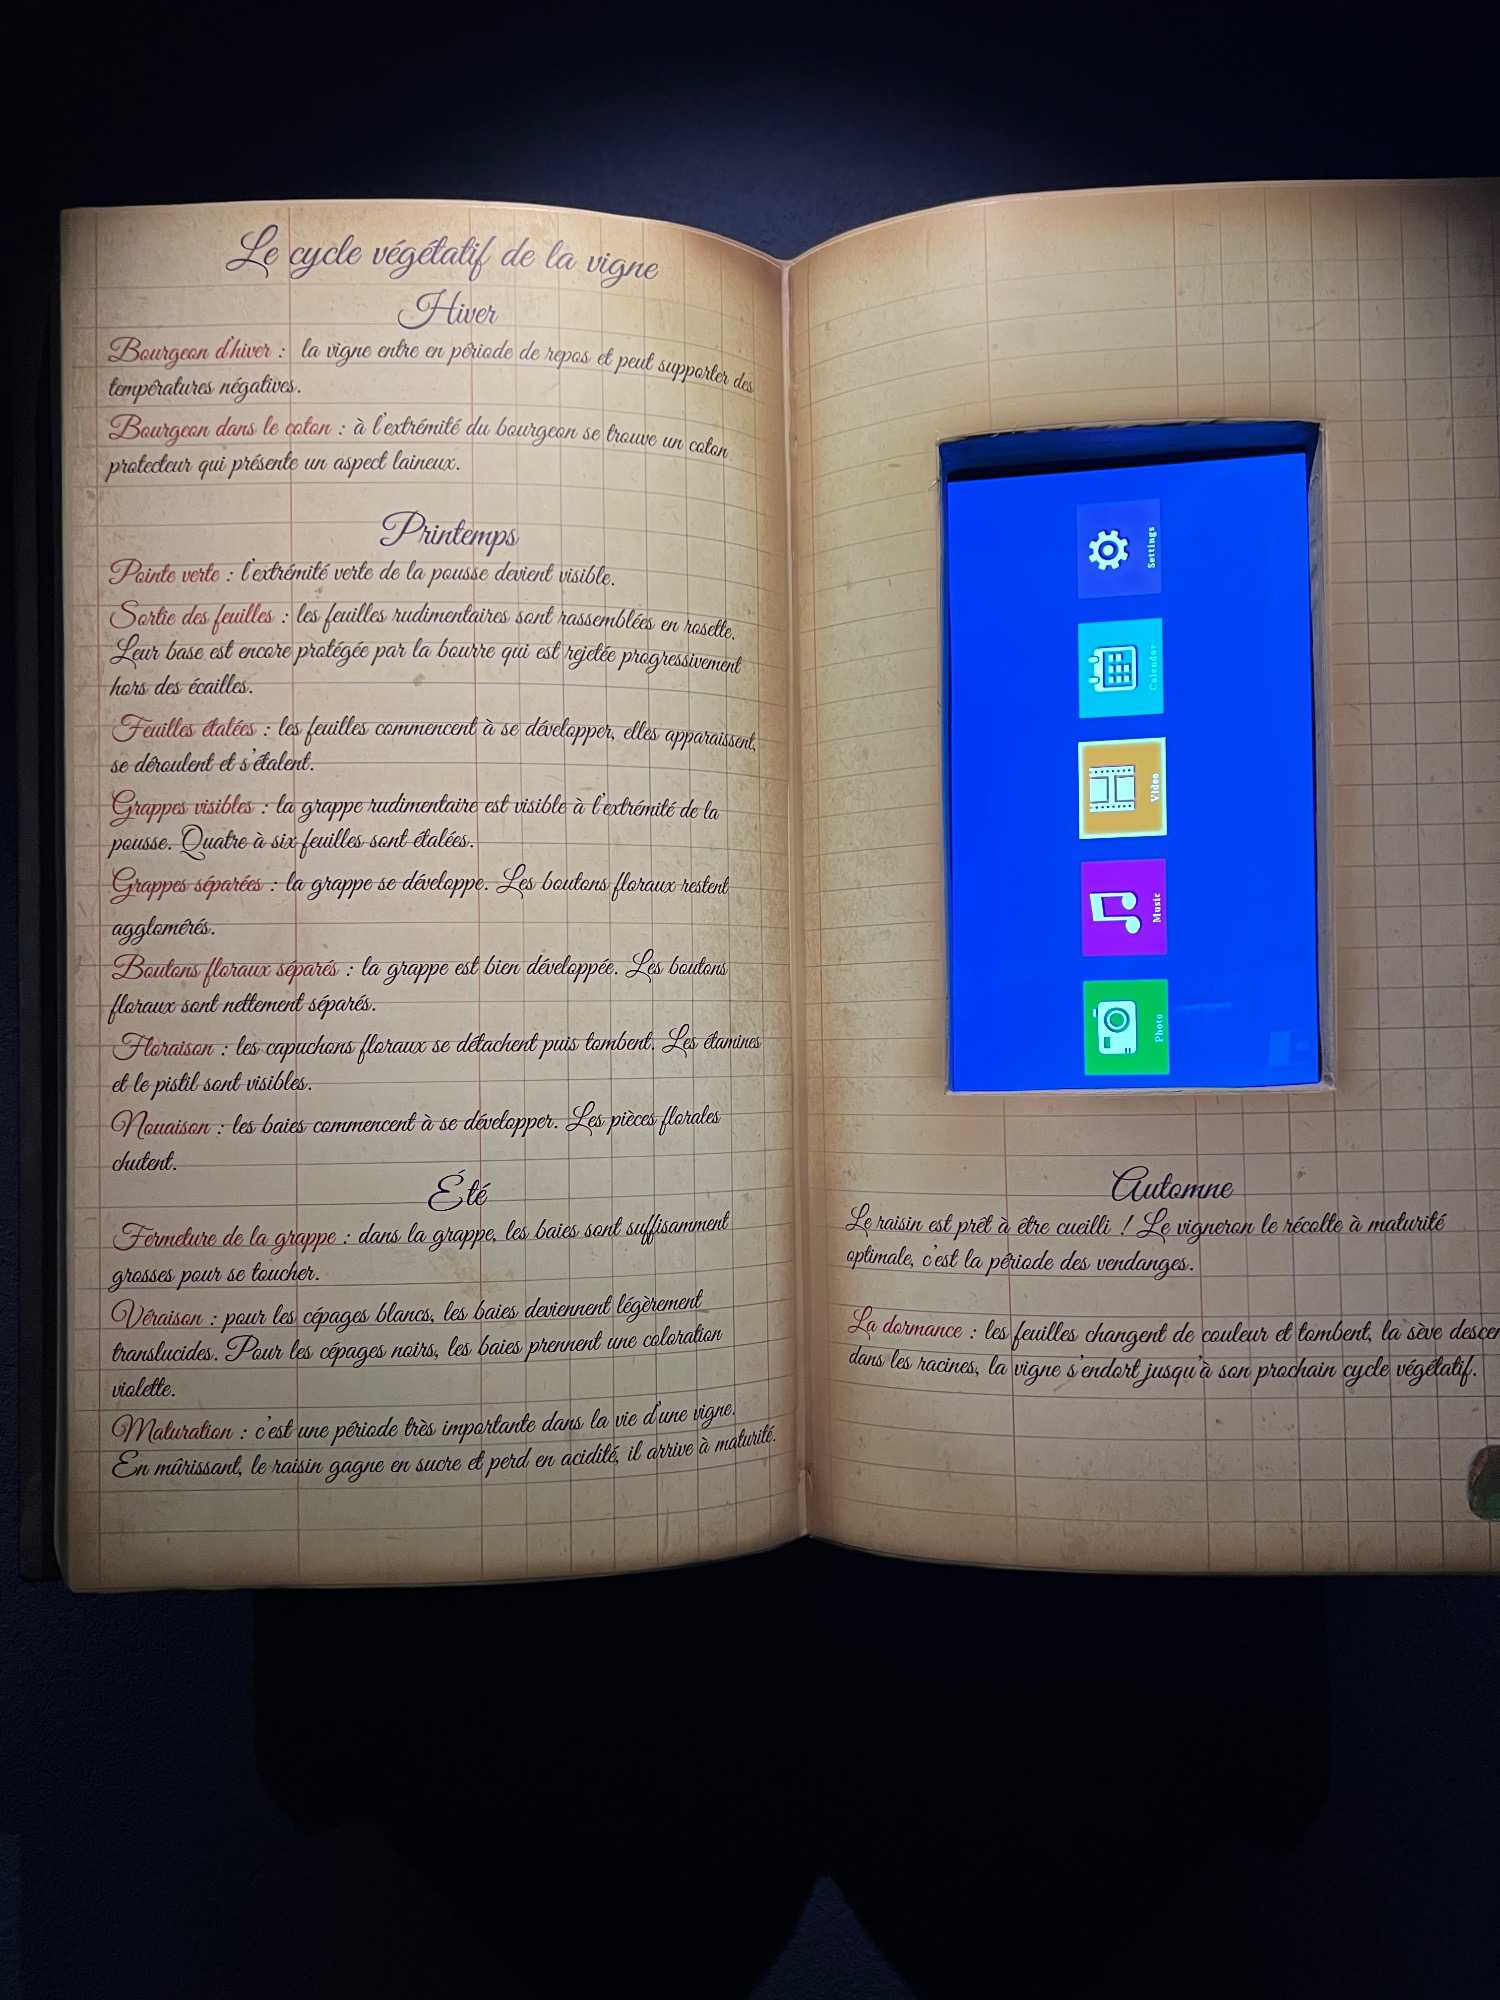 Le cycle végétatif de la vigne
Hiver
Bourgeon d'hiver : la vigne entre en période de repos et peut supporter des
températures négatives.
Bourgeon dans le coton : à l'extrémité du bourgeon se trouve un coton
protecteur qui présente un aspect laineux.
Printemps
Pointe verte : l'extrémité verte de la pousse devient visible.
Sortie des feuilles : les feuilles rudimentaires sont rassemblées en rosette.
Leur base est encore protégée par la bourre qui est rejetée progressivement
hors des écailles.
Feuilles étalées : les feuilles commencent à se développer, elles apparaissent,
se déroulent et s'étalent.
Grappes visibles : la grappe rudimentaire est visible à l'extrémité de la
pousse. Quatre à six feuilles sont étalées.
Grappes séparées : la grappe se développe. Les boutons floraux restent
agglomérés.
Boutons floraux séparés : la grappe est bien développée. Les boutons
floraux sont nettement séparés.
Floraison : les capuchons floraux se détachent puis tombent. Les étamines
et le pistil sont visibles.
Nouaison : les baies commencent à se développer. Les pièces florales
chutent.
Été
Fermeture de la grappe : dans la grappe, les baies sont suffisamment
grosses pour se toucher.
Véraison : pour les cépages blancs, les baies deviennent légèrement
translucides. Pour les cépages noirs, les baies prennent une coloration
violette.
Maturation : c'est une période très importante dans la vie d'une vigne.
En mûrissant, le raisin gagne en sucre et perd en acidité, il arrive à maturité.
Settings
Calendar
Video
Music
Photo
Automne
Le raisin est prêt à être cueilli ! Le vigneron le récolte à maturité
optimale, c'est la période des vendanges.
La dormance : les feuilles changent de couleur et tombent, la sève descen
dans les racines, la vigne s'endort jusqu'à son prochain cycle végétatif.